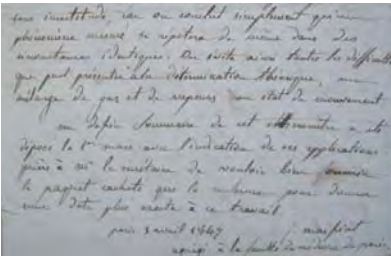 sans incertitude car on conclut simplement qu'un
phénomène mesuré se répétera de même dans des
circonstances identiques. On évite ainsi toutes les difficultés
que peut présenter à la détermination théorique, un
mélange de gaz et de vapeurs en état de mouvement
un dépôt sommaire de cet a été
déposé le 1er mars avec l'indication de ses applications
prière à Mr le secrétaire de vouloir bien
le paquet cacheté que le pour donner
une date plus exacte à ce travail
paris 3 avril 1847
agrégé à la faculté de médecine de paris